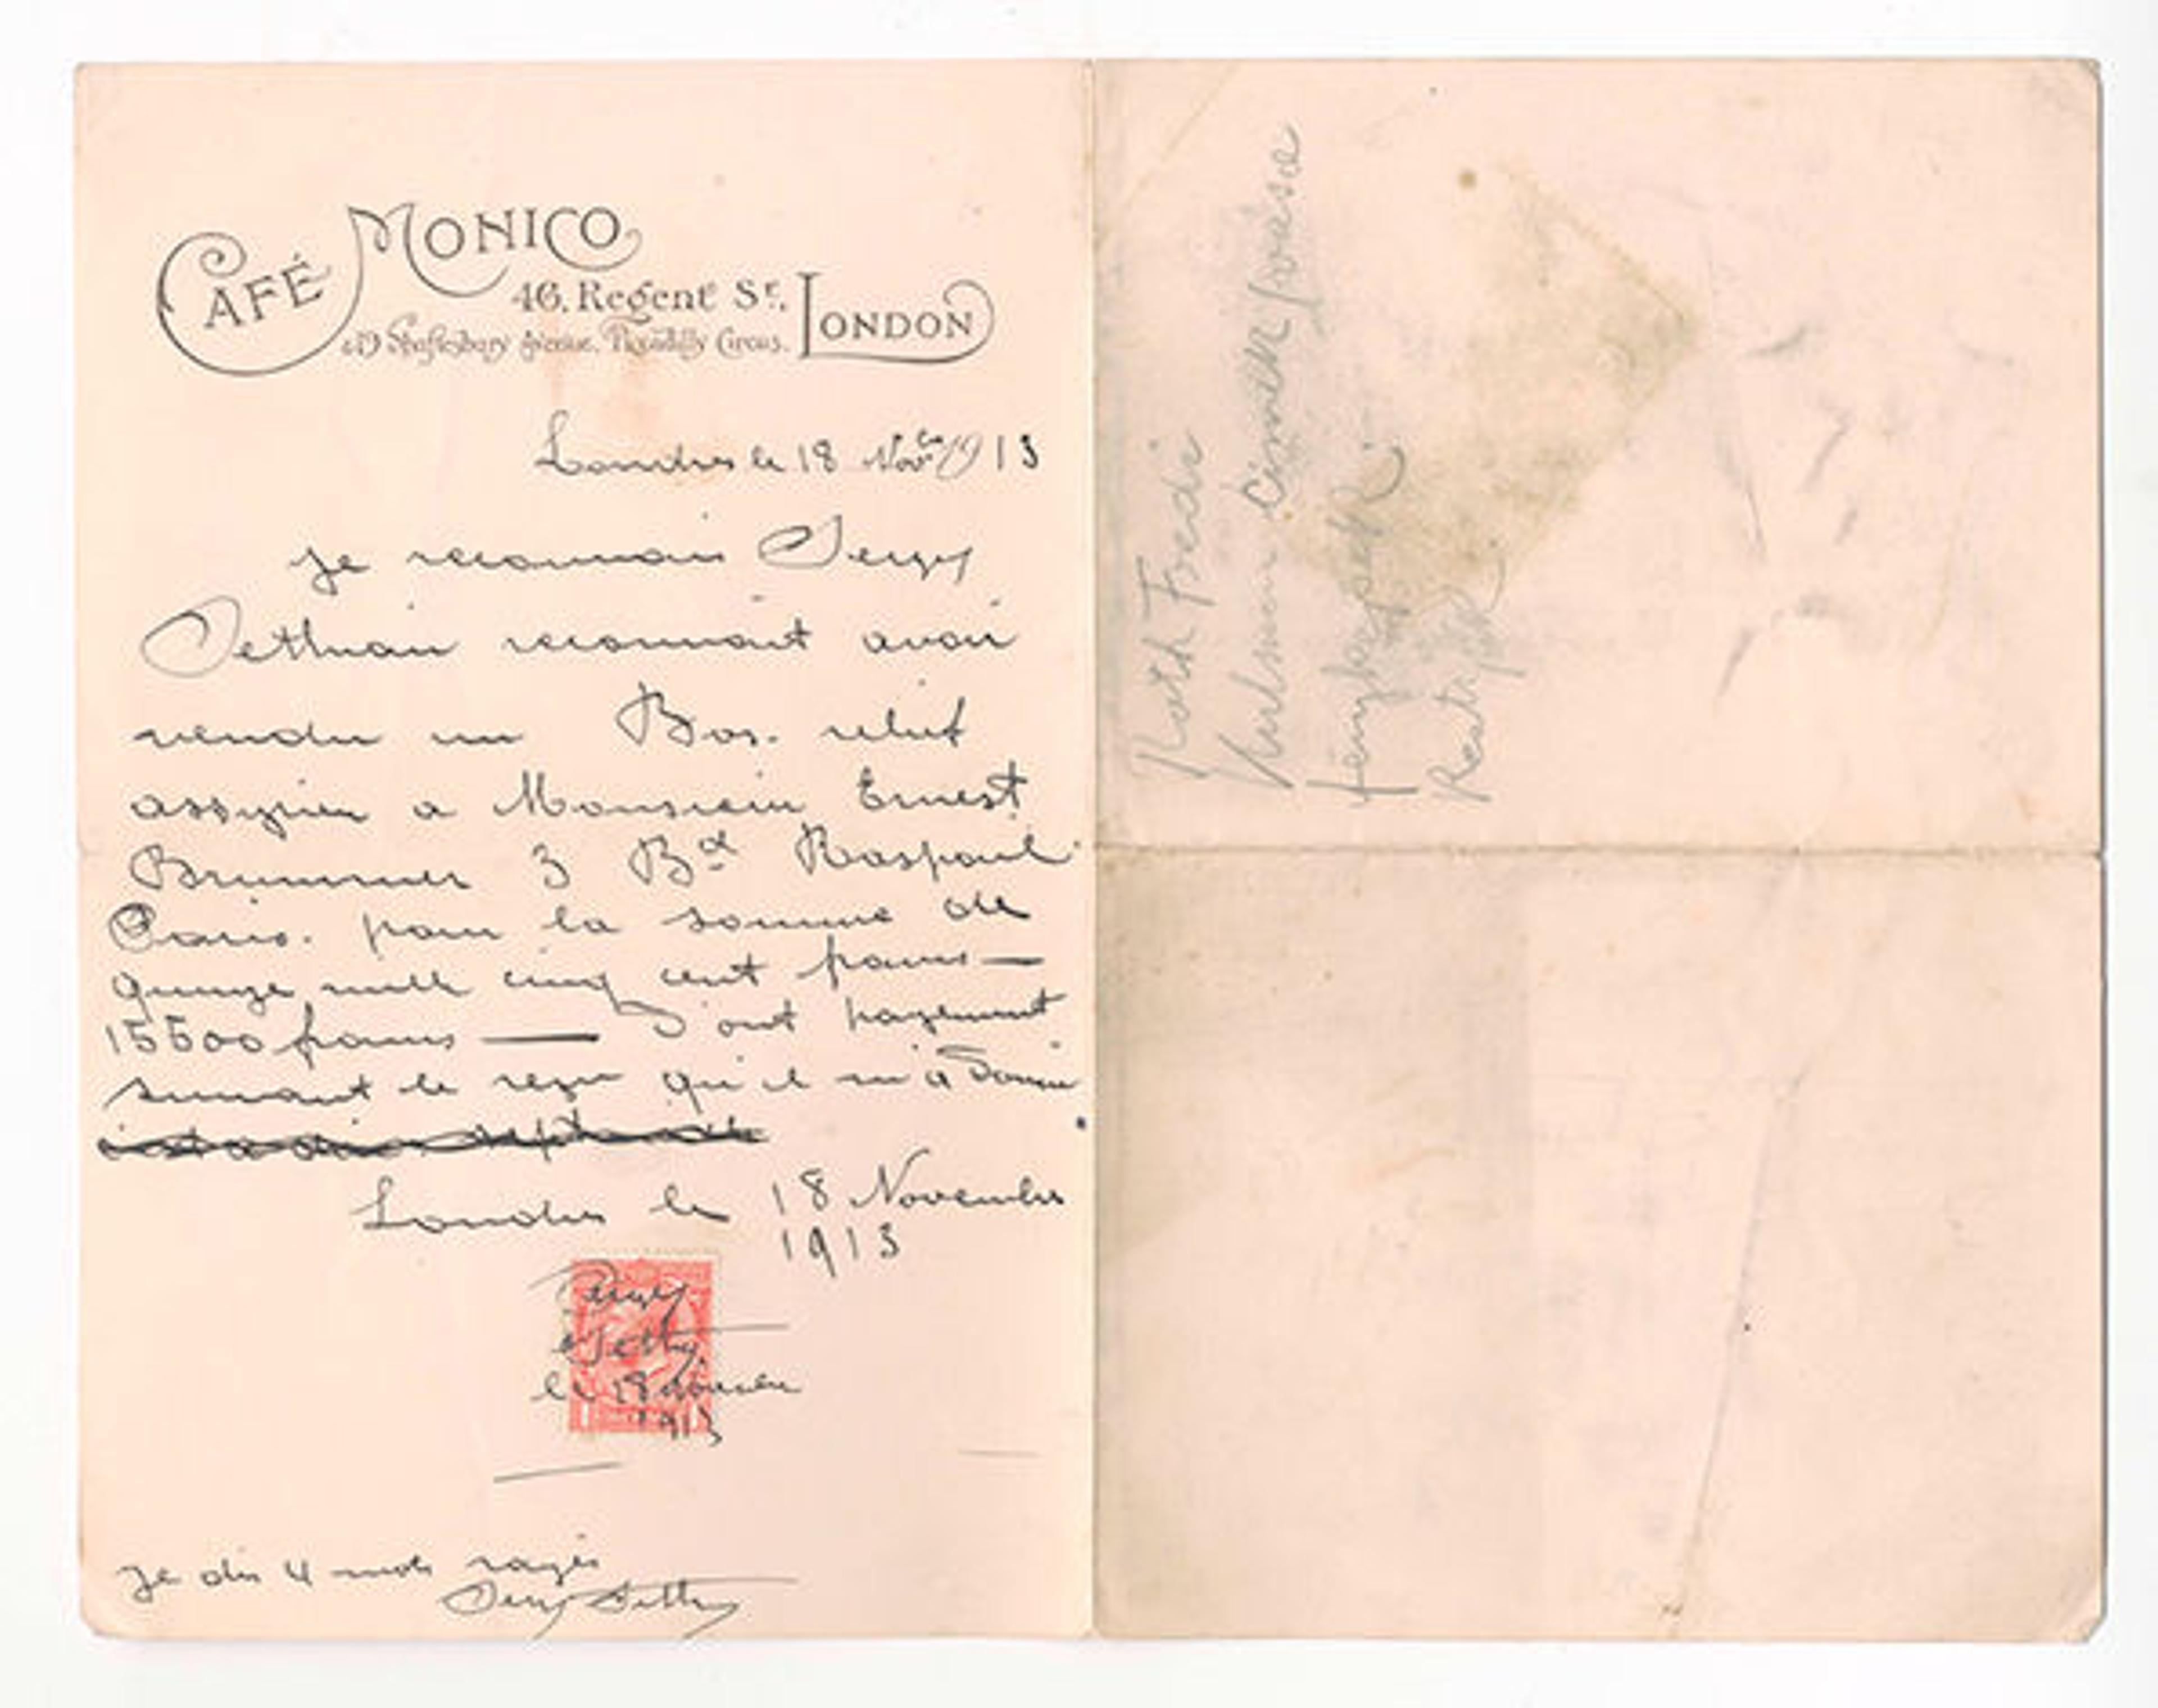 CAFÉ MONICO
46, Regent St.,
49 Shaftesbury Avenue, Piccadilly Circus. LONDON
Londres le 18 Novbre 1913
je reconnais Sergy
Sethnan reconnait avoir
vendu un Bas. relief
assyrien a Monsieur Ernest
Brummer 3 Bd Raspail
Paris. pour la somme de
quinze mille cinq cent francs —
15500 francs — dont payement
suivant le reçu qu'il m'a donné
Londres le 18 Novembre
1913
Sergy
Sethy
le 18 novembre
1913
je dis 4 mots rayés
Sergy Sethy
Roth